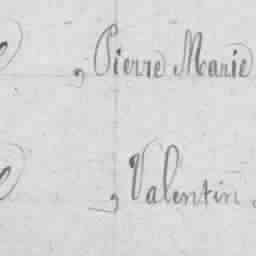 , Pierre Marie
, Valentin